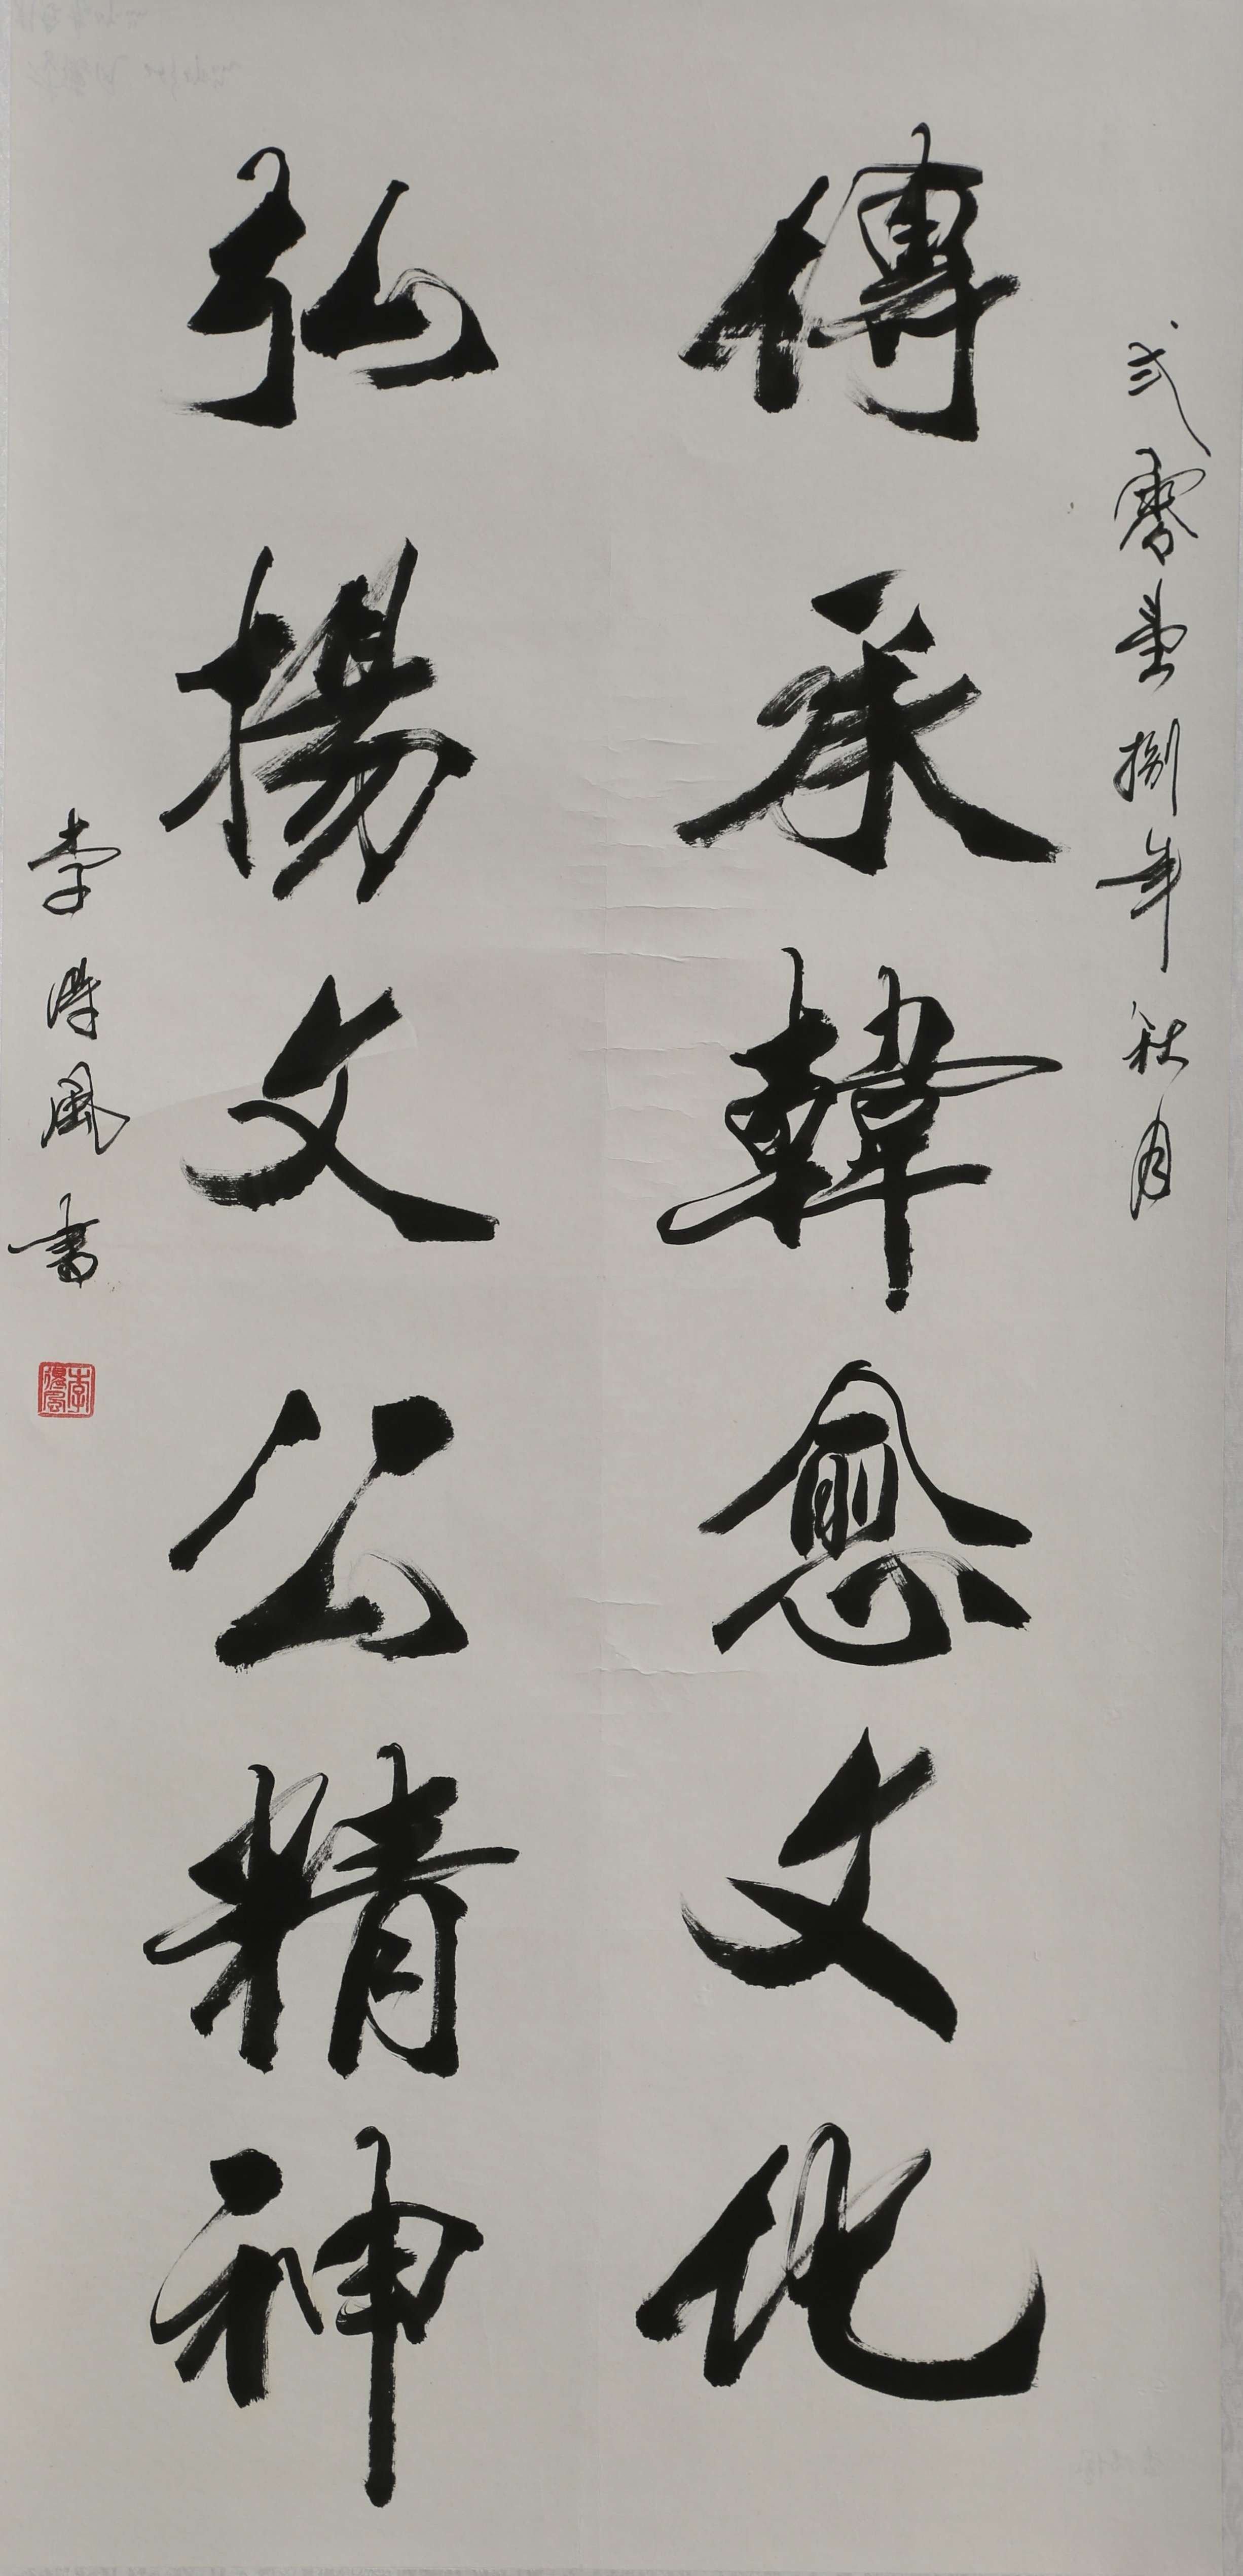 弍零壹捌年秋月
傳承韓愈文化
弘揚文公精神
李得風書